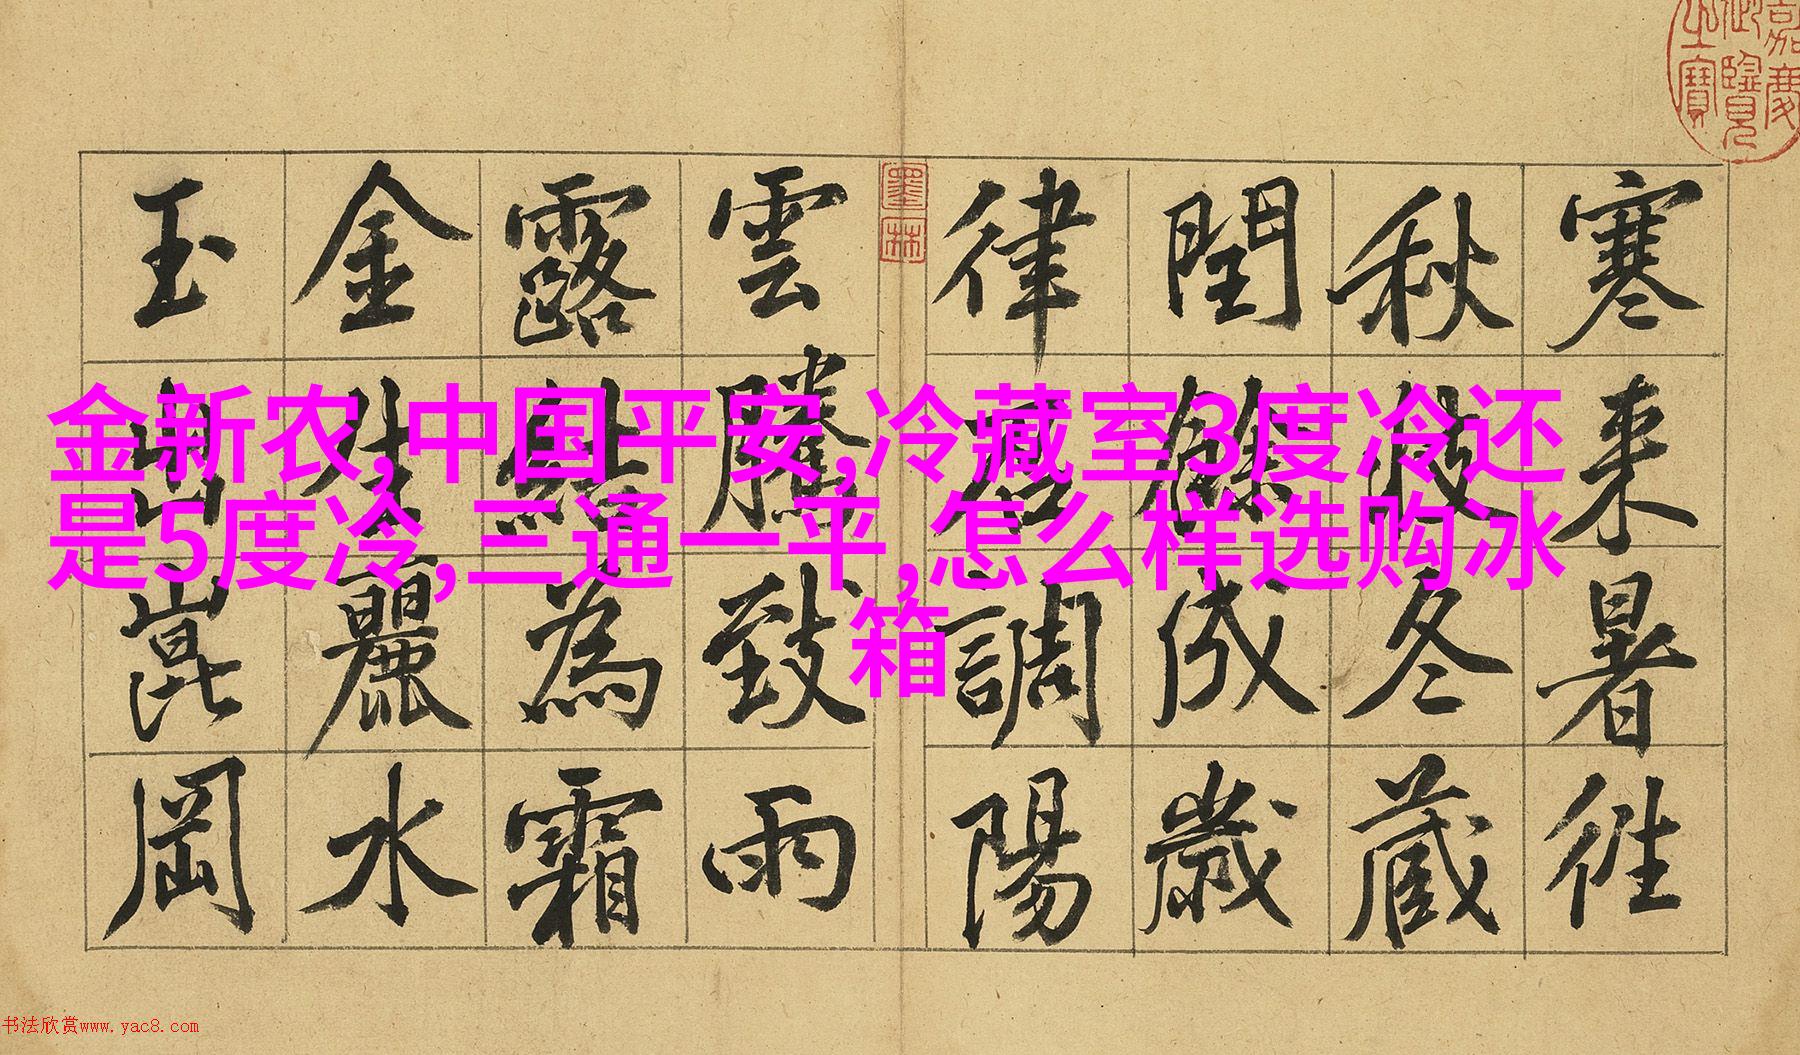 金新农,中国平安,冷藏室3度冷还
是5度冷,三通一平,怎么样选购冰
箱
寒來暑往
秋收冬藏
閏餘成歲
律呂調陽
雲騰致雨
露結為霜
金生麗水
玉出崑岡
嘉慶御覽之寶
墨林
书法欣赏www.yac8.com